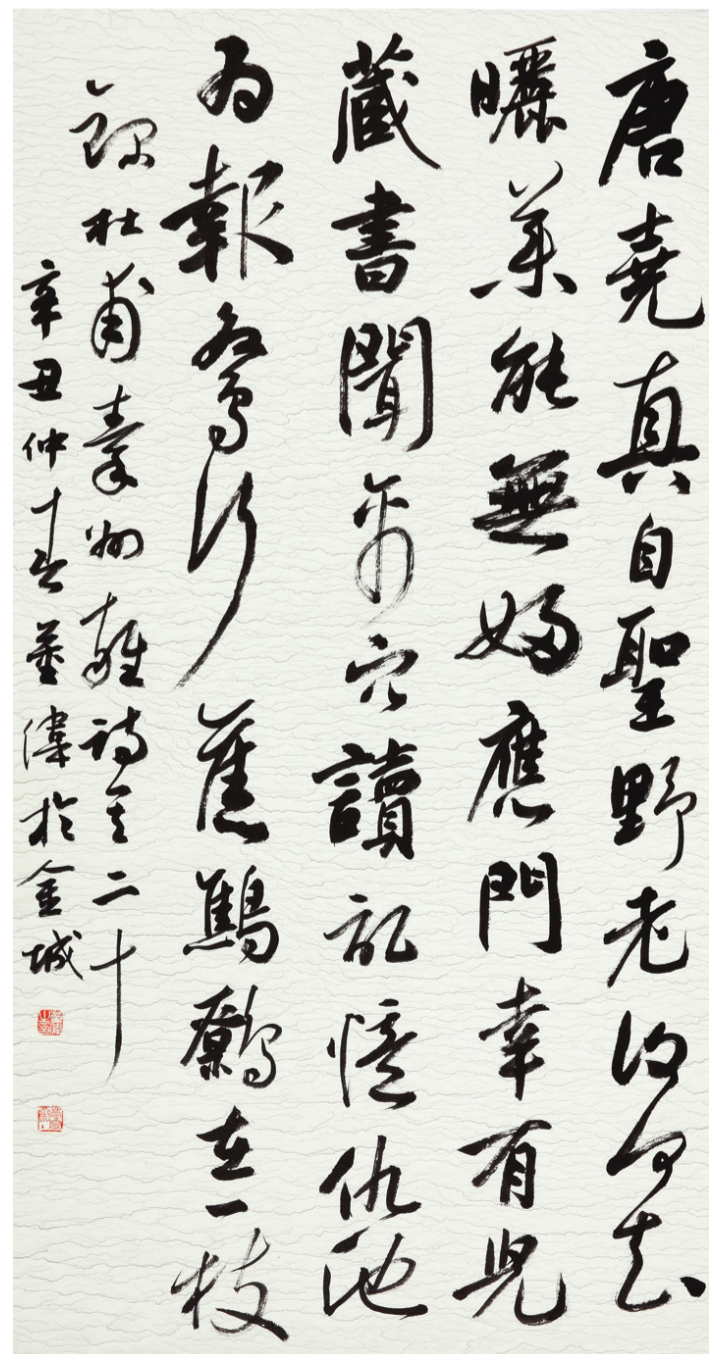 唐堯真自聖野老復何知
曬藥能無婦應門幸有兒
藏書聞禹穴讀記憶仇池
為報鴛行舊鷦鷯在一枝
錄杜甫秦州雜詩其二十
辛丑仲春董偉於金城